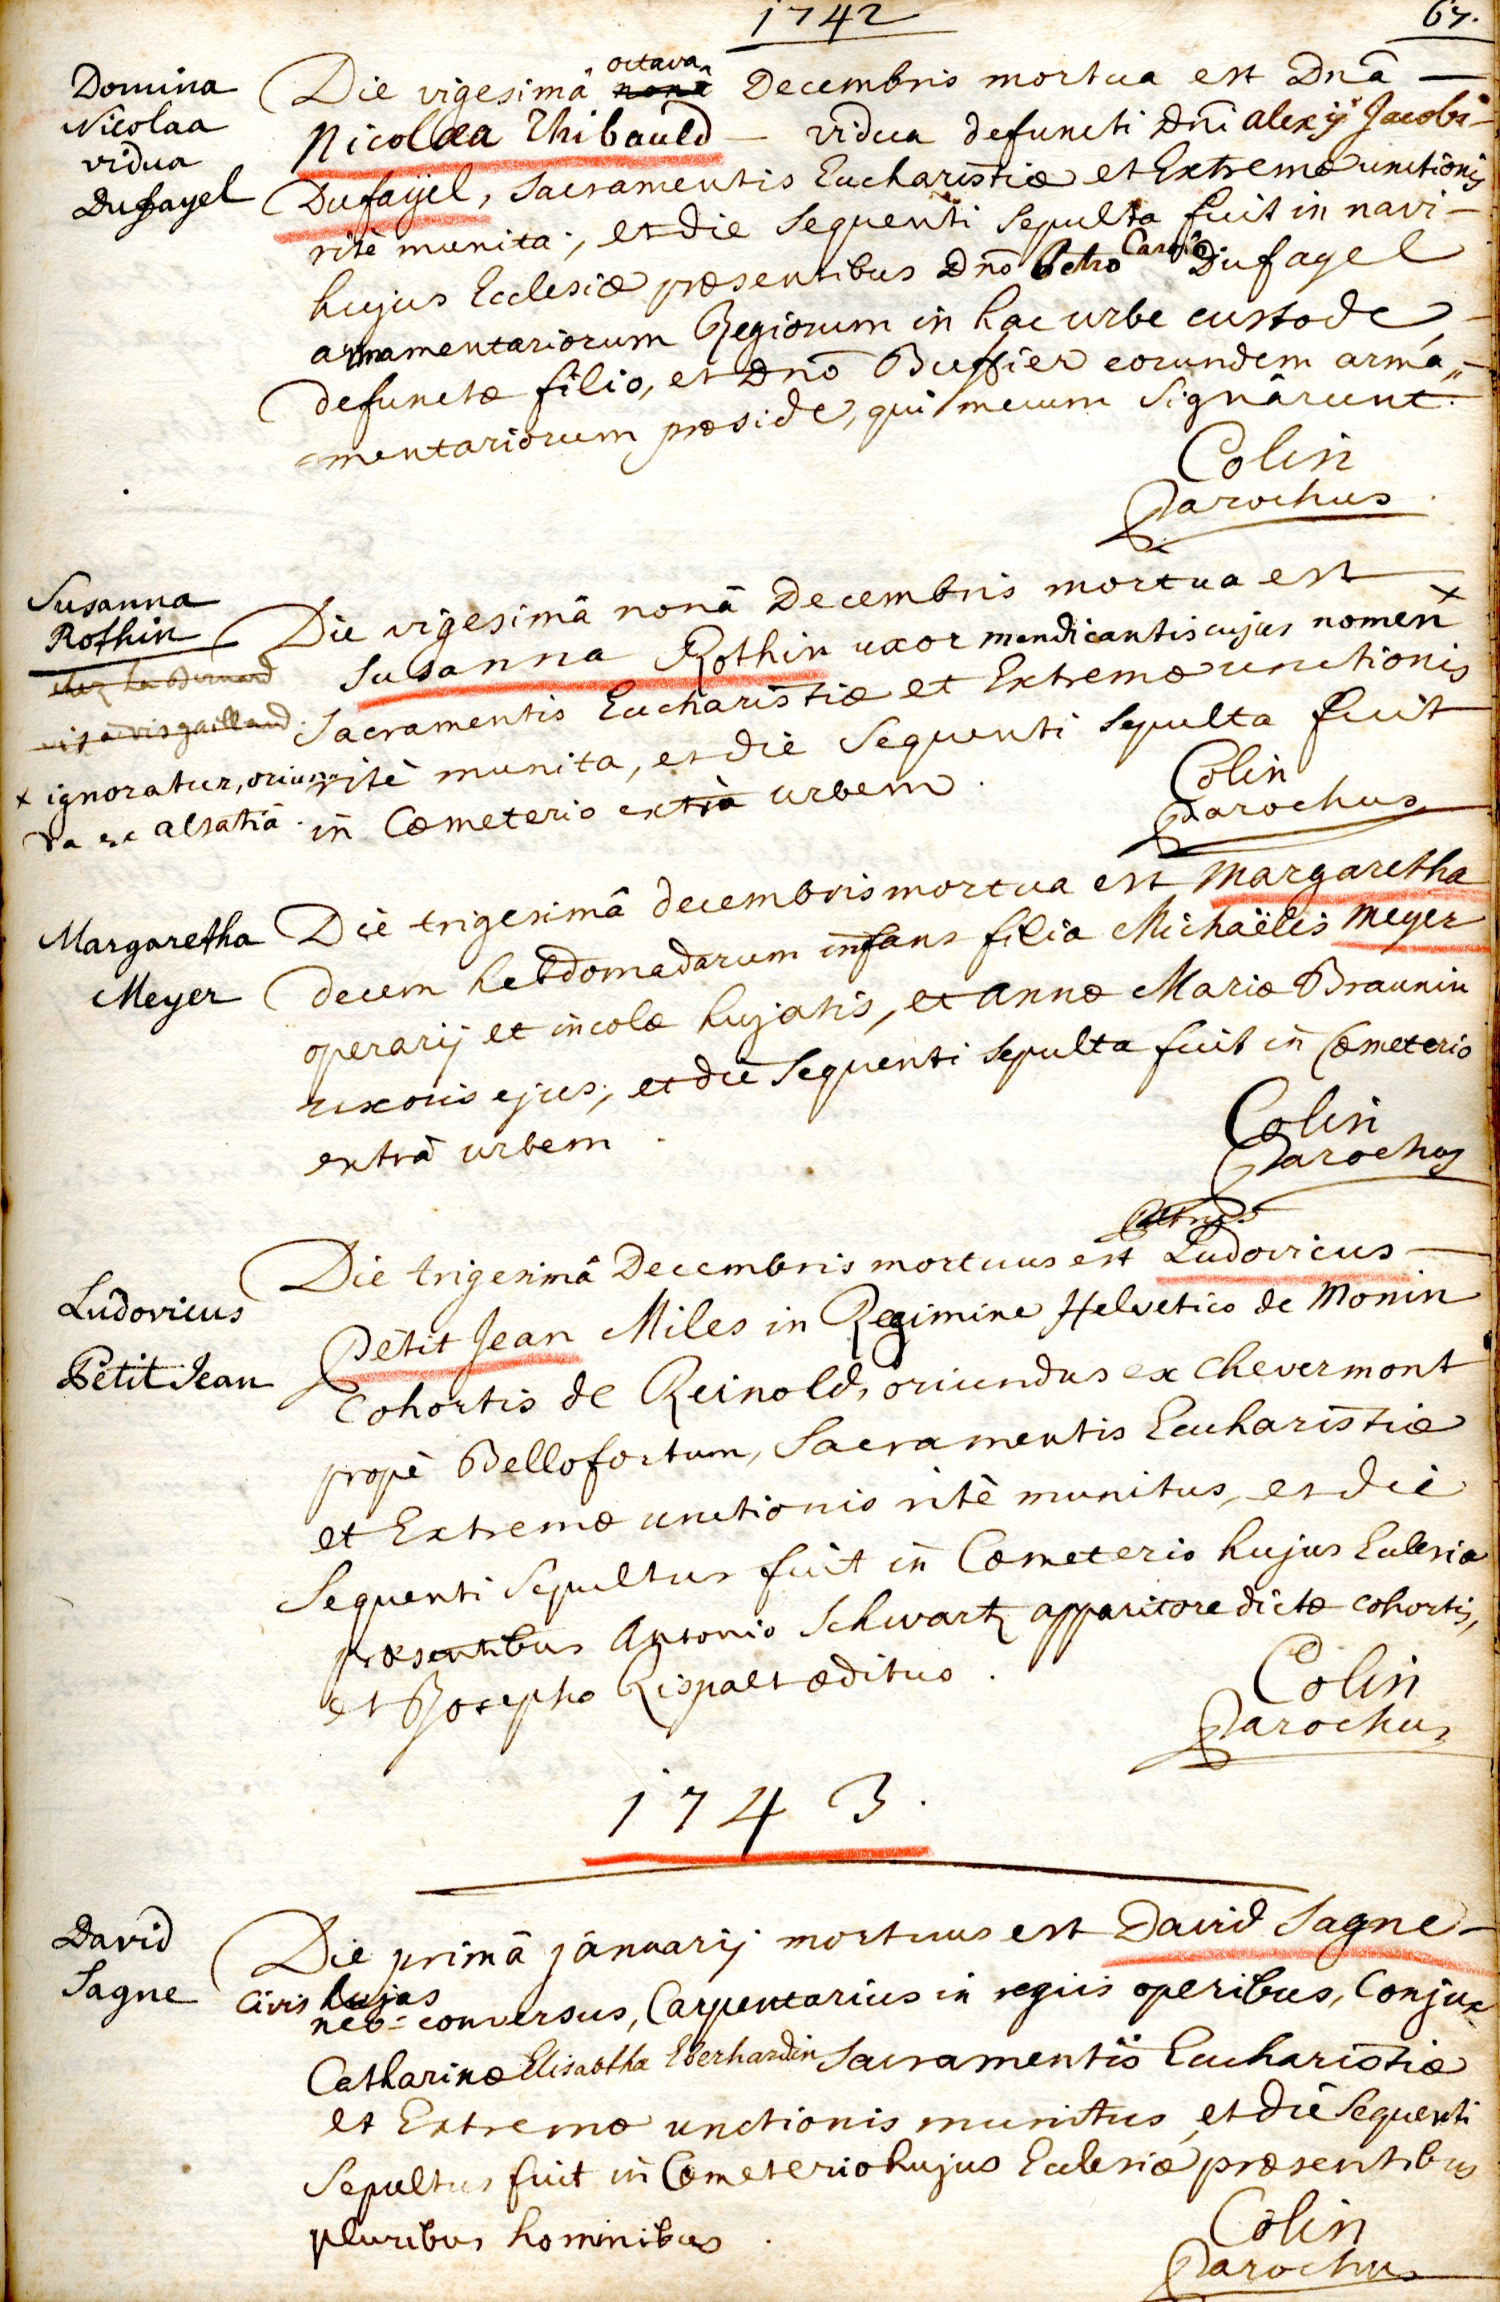 1742
67.
Domina
Nicolaa
vidua
Dufayel
Die vigesimâ octava nonâ Decembris mortua est Dnã
Nicolæa Thibauld vidua defuncti Dñi alexij Jacobi
Dufaÿel, Sacramentis Eucharistiæ et Extremæ unctionis
ritè munita; et die sequenti sepulta fuit in navi
hujus Ecclesiæ præsentibus Dnõ Petro Dufayel
armamentariorum Regiorum in hac urbe custode,
defunctæ filio, et Dnõ Buffier eorundem arma„
mentariorum præside, qui mecum signârunt.
Colin
Parochus
Susanna
Rothin
chez la Bernard
vis à vis gailland
x ignoratur, oriun
da ex alsatiâ.
Die vigesimâ nonâ Decembris mortua est
Susanna Rothin uxor mendicantis cujus nomen x
Sacramentis Eucharistiæ et Extremæ unctionis
ritè munita, et die sequenti sepulta fuit
in Cœmeterio extrà urbem.
Colin
Parochus
Margaretha
Meyer
Die trigesimâ decembris mortua est Margaretha
decem hebdomadarum infans filia Michaëlis Meyer
operarij et incolæ hujatis, et annæ Mariæ Braunin
uxoris ejus; et die sequenti sepulta fuit in Cœmeterio
extrà urbem.
Colin
Parochus
Ludovicus
Petit Jean
Die trigesimâ Decembris mortuus est Ludovicus
Petit Jean Miles in Regimine Helvetico de Monin
Cohortis de Reinold, oriundus ex Chevermont
propè Bellofortum, Sacramentis Eucharistiæ
et Extremæ unctionis ritè munitus, et die
Sequenti Sepultus fuit in Cœmeterio hujus Eclesiæ
præsentibus Antonio Schwartz apparitore dictæ cohortis,
et Josepho Rispalt ædituo.
Colin
Parochus
1743.
David
Sagne
Die primâ januarij mortuus est David Sagne
Civis hujas
neo-conversus, Carpentarius in regiis operibus, Conjux
Catharinæ Elisabetha Eberhardin Sacramentis Eucharistiæ
et Extremæ unctionis munitus, et die Sequenti
Sepultus fuit in Cœmeterio hujus Eclesiæ præsentibus
pluribus hominibus.
Colin
Parochus